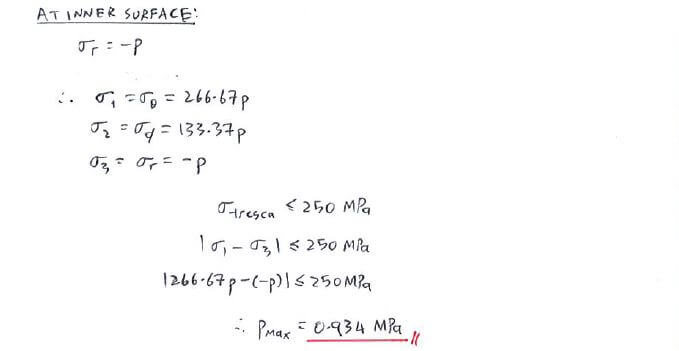 AT INNER SURFACE:
σr = -p
∴ σ1 = σθ = 266.67p
σ2 = σq = 133.37p
σ3 = σr = -p
σtresca ≤ 250 MPa
|σ1 - σ3| ≤ 250 MPa
|266.67p-(-p)| ≤ 250 MPa
∴ PMax = 0.934 MPa //